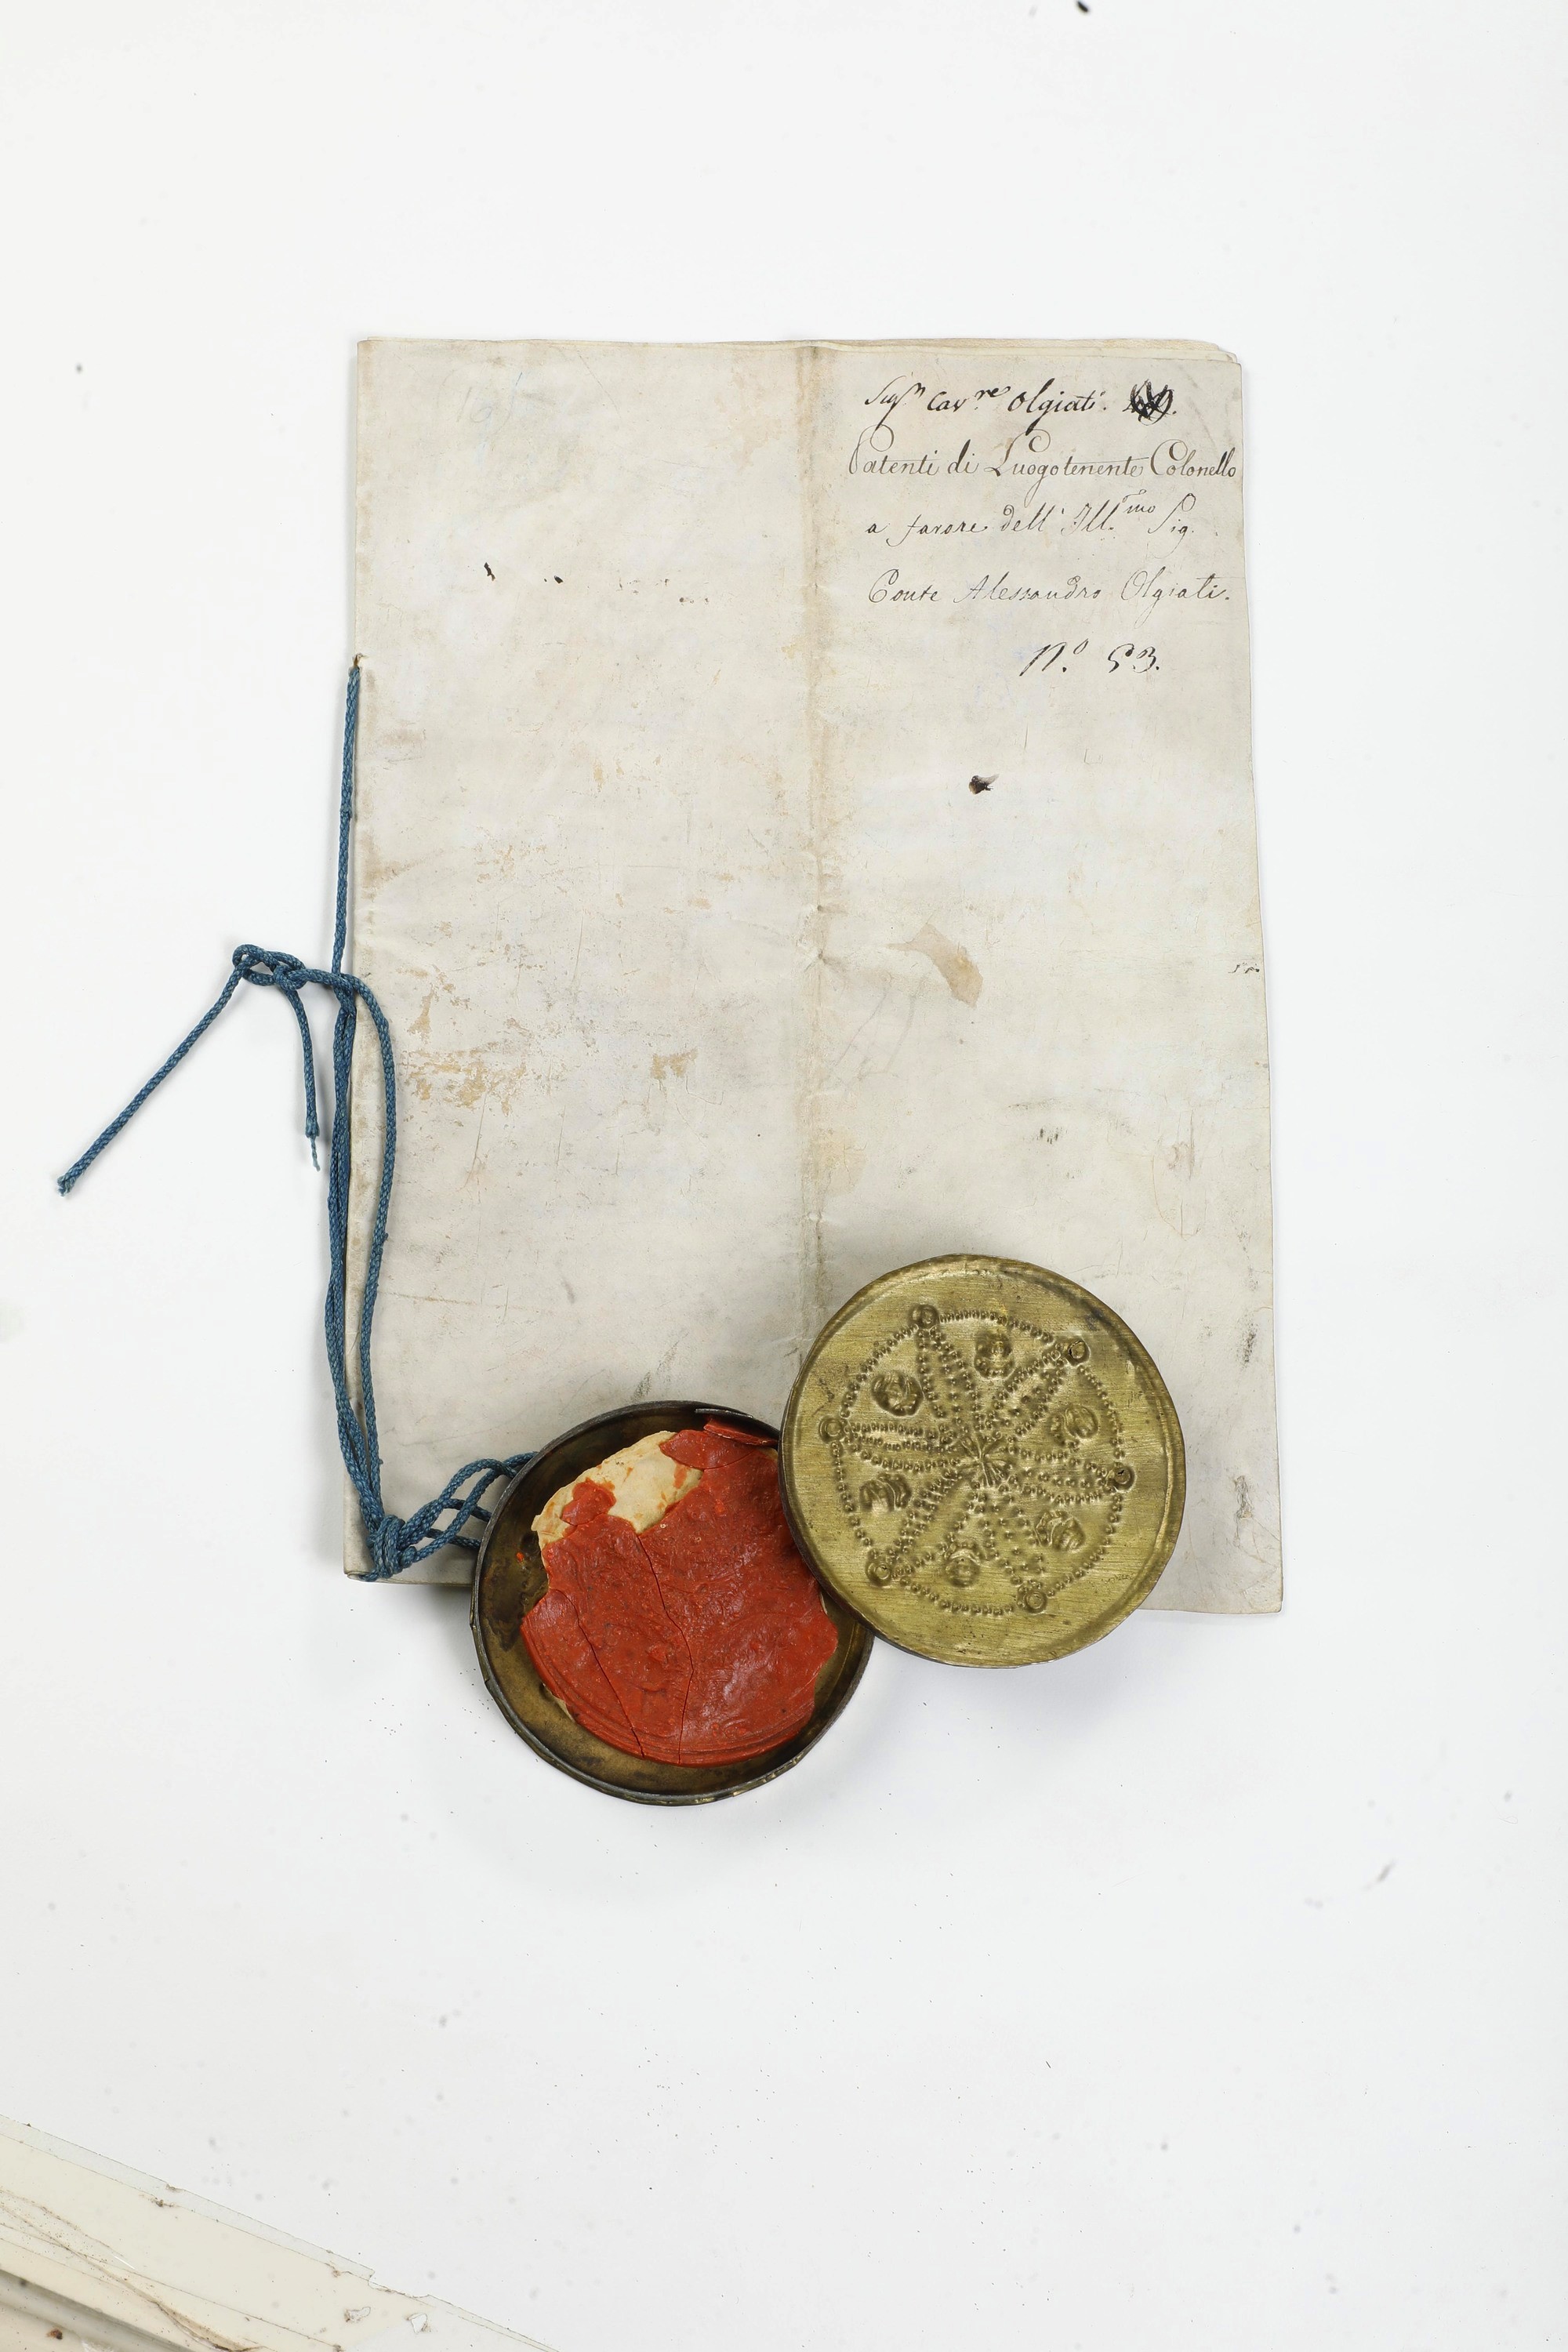 Sigr Cavre Olgiati.
Patenti di Luogotenente Colonello
a favore dell' Ill.mo Sig.
Conte Alessandro Olgiati.
N.o 53.